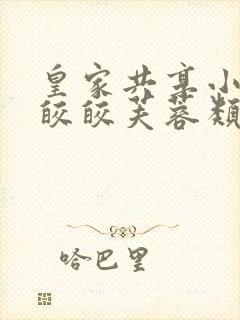 皇家共享小
皎皎芙蓉类
哈巴里